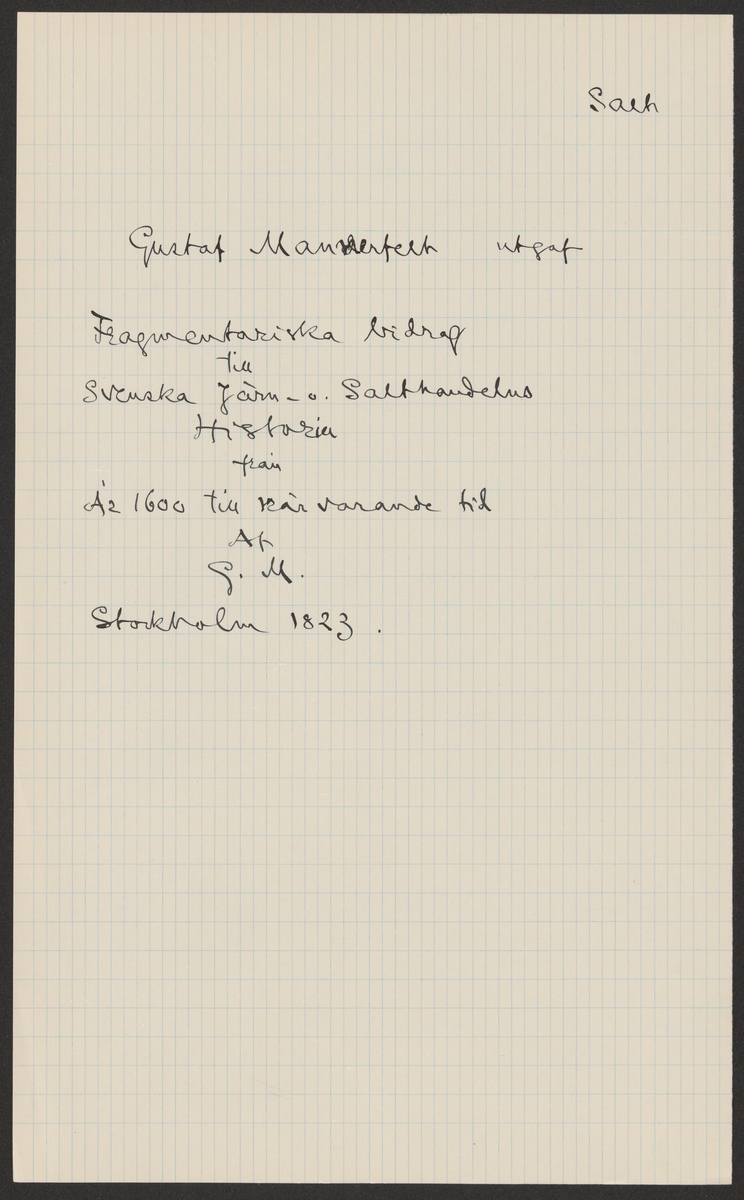 Salt
Gustaf Manderfelt utgaf
Fragmentariska bidrag
till
Svenska Järn- o. Salthandelns
Historia
från
År 1600 till närvarande tid
Af
G. M.
Stockholm 1823.